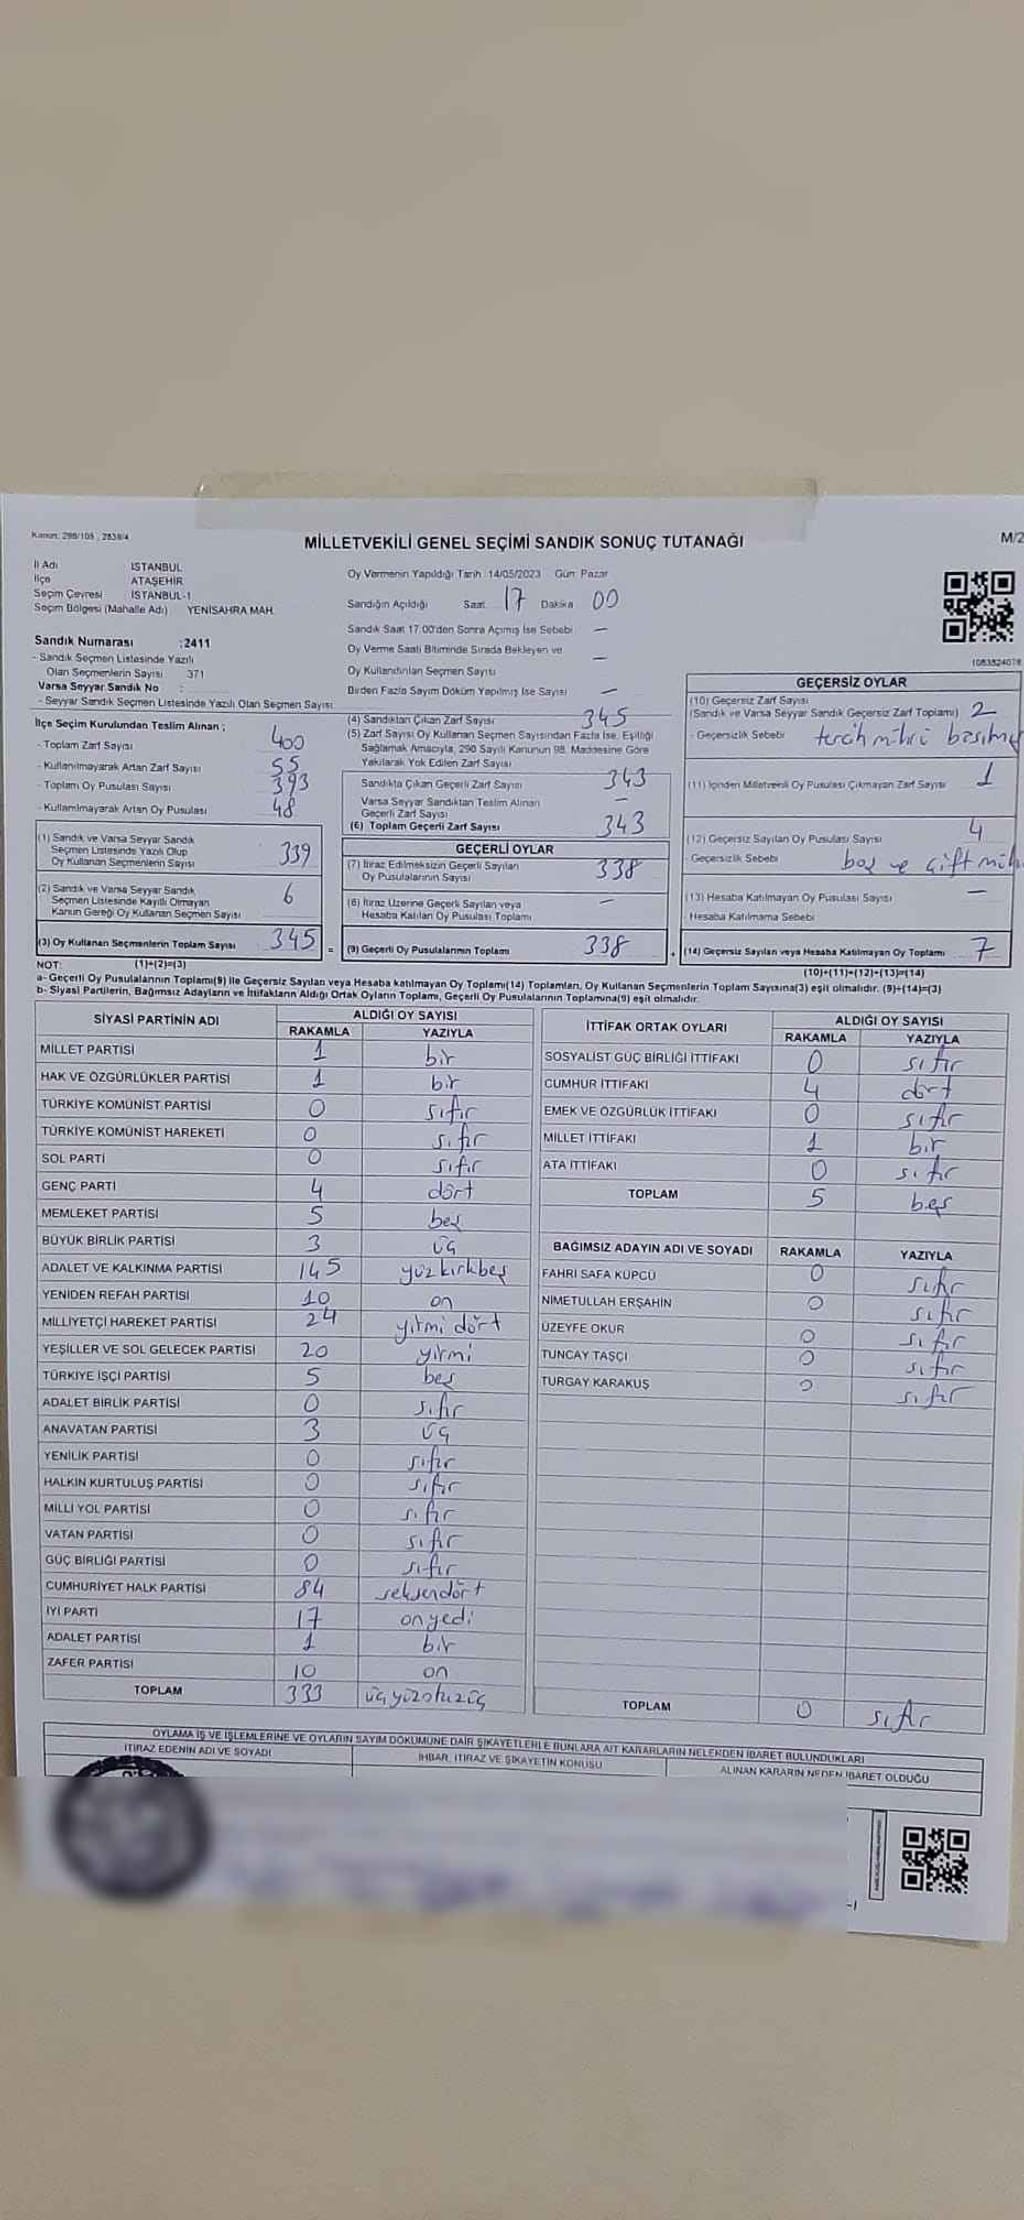 Kanun: 298/105 , 2839/4
MİLLETVEKİLİ GENEL SEÇİMİ SANDIK SONUÇ TUTANAĞI
M/2
İl Adı İSTANBUL
İlçe ATAŞEHİR
Seçim Çevresi İSTANBUL-1
Seçim Bölgesi (Mahalle Adı) YENİSAHRA MAH.
Oy Vermenin Yapıldığı Tarih :14/05/2023 Gün: Pazar
Sandığın Açıldığı Saat: 17 Dakika 00
Sandık Saat 17:00'den Sonra Açımış İse Sebebi –
Oy Verme Saati Bitiminde Sırada Bekleyen ve
Oy Kullandırılan Seçmen Sayısı –
Birden Fazla Sayım Döküm Yapılmış İse Sayısı –
Sandık Numarası :2411
- Sandık Seçmen Listesinde Yazılı
Olan Seçmenlerin Sayısı 371
Varsa Seyyar Sandık No :
- Seyyar Sandık Seçmen Listesinde Yazılı Olan Seçmen Sayısı:
İlçe Seçim Kurulundan Teslim Alınan ;
- Toplam Zarf Sayısı 400
- Kullanılmayarak Artan Zarf Sayısı 55
- Toplam Oy Pusulası Sayısı 393
- Kullanılmayarak Artan Oy Pusulası 48
(1) Sandık ve Varsa Seyyar Sandık
Seçmen Listesinde Yazılı Olup
Oy Kullanan Seçmenlerin Sayısı 339
(2) Sandık ve Varsa Seyyar Sandık
Seçmen Listesinde Kayıtlı Olmayan
Kanun Gereği Oy Kullanan Seçmen Sayısı 6
(3) Oy Kullanan Seçmenlerin Toplam Sayısı 345 =
(4) Sandıktan Çıkan Zarf Sayısı 345
(5) Zarf Sayısı Oy Kullanan Seçmen Sayısından Fazla İse, Eşitliği
Sağlamak Amacıyla, 298 Sayılı Kanunun 98. Maddesine Göre
Yakılarak Yok Edilen Zarf Sayısı
Sandıkta Çıkan Geçerli Zarf Sayısı 343
Varsa Seyyar Sandıktan Teslim Alınan
Geçerli Zarf Sayısı –
(6) Toplam Geçerli Zarf Sayısı 343
GEÇERLİ OYLAR
(7) İtiraz Edilmeksizin Geçerli Sayılan
Oy Pusulalarının Sayısı 338
(8) İtiraz Üzerine Geçerli Sayılan veya
Hesaba Katılan Oy Pusulası Toplamı –
(9) Geçerli Oy Pusulalarının Toplamı 338 +
1083824078
GEÇERSİZ OYLAR
(10) Geçersiz Zarf Sayısı
(Sandık ve Varsa Seyyar Sandık Geçersiz Zarf Toplamı) 2
- Geçersizlik Sebebi tercih mührü
(11) İçinden Milletvekili Oy Pusulası Çıkmayan Zarf Sayısı 1
(12) Geçersiz Sayılan Oy Pusulası Sayısı 4
- Geçersizlik Sebebi boş ve çift
(13) Hesaba Katılmayan Oy Pusulası Sayısı –
Hesaba Katılmama Sebebi
(14) Geçersiz Sayılan veya Hesaba Katılmayan Oy Toplamı 7
NOT: (1)+(2)=(3) (10)+(11)+(12)+(13)=(14)
a- Geçerli Oy Pusulalarının Toplamı(9) ile Geçersiz Sayılan veya Hesaba katılmayan Oy Toplamı(14) Toplamları, Oy Kullanan Seçmenlerin Toplam Sayısına(3) eşit olmalıdır. (9)+(14)=(3)
b- Siyasi Partilerin, Bağımsız Adayların ve İttifakların Aldığı Ortak Oyların Toplamı, Geçerli Oy Pusulalarının Toplamına(9) eşit olmalıdır.
SİYASİ PARTİNİN ADI ALDIĞI OY SAYISI
RAKAMLA YAZIYLA
MİLLET PARTİSİ 1 bir
HAK VE ÖZGÜRLÜKLER PARTİSİ 1 bir
TÜRKİYE KOMÜNİST PARTİSİ 0 sıfır
TÜRKİYE KOMÜNİST HAREKETİ 0 sıfır
SOL PARTİ 0 sıfır
GENÇ PARTİ 4 dört
MEMLEKET PARTİSİ 5 beş
BÜYÜK BİRLİK PARTİSİ 3 üç
ADALET VE KALKINMA PARTİSİ 145 yüzkırkbeş
YENİDEN REFAH PARTİSİ 10 on
MİLLİYETÇİ HAREKET PARTİSİ 24 yirmi dört
YEŞİLLER VE SOL GELECEK PARTİSİ 20 yirmi
TÜRKİYE İŞÇİ PARTİSİ 5 beş
ADALET BİRLİK PARTİSİ 0 sıfır
ANAVATAN PARTİSİ 3 üç
YENİLİK PARTİSİ 0 sıfır
HALKIN KURTULUŞ PARTİSİ 0 sıfır
MİLLİ YOL PARTİSİ 0 sıfır
VATAN PARTİSİ 0 sıfır
GÜÇ BİRLİĞİ PARTİSİ 0 sıfır
CUMHURİYET HALK PARTİSİ 84 seksendört
İYİ PARTİ 17 onyedi
ADALET PARTİSİ 1 bir
ZAFER PARTİSİ 10 on
TOPLAM 333 üçyüzotuzüç
İTTİFAK ORTAK OYLARI ALDIĞI OY SAYISI
RAKAMLA YAZIYLA
SOSYALİST GÜÇ BİRLİĞİ İTTİFAKI 0 sıfır
CUMHUR İTTİFAKI 4 dört
EMEK VE ÖZGÜRLÜK İTTİFAKI 0 sıfır
MİLLET İTTİFAKI 1 bir
ATA İTTİFAKI 0 sıfır
TOPLAM 5 beş
BAĞIMSIZ ADAYIN ADI VE SOYADI RAKAMLA YAZIYLA
FAHRİ SAFA KÜPCÜ 0 sıfır
NİMETULLAH ERŞAHİN 0 sıfır
ÜZEYFE OKUR 0 sıfır
TUNCAY TAŞÇI 0 sıfır
TURGAY KARAKUŞ 0 sıfır
TOPLAM 0 sıfır
OYLAMA İŞ VE İŞLEMLERİNE VE OYLARIN SAYIM DÖKÜMÜNE DAİR ŞİKAYETLERLE BUNLARA AİT KARARLARIN NELERDEN İBARET BULUNDUKLARI
İTİRAZ EDENİN ADI VE SOYADI İHBAR, İTİRAZ VE ŞİKAYETİN KONUSU ALINAN KARARIN NEDEN İBARET OLDUĞU